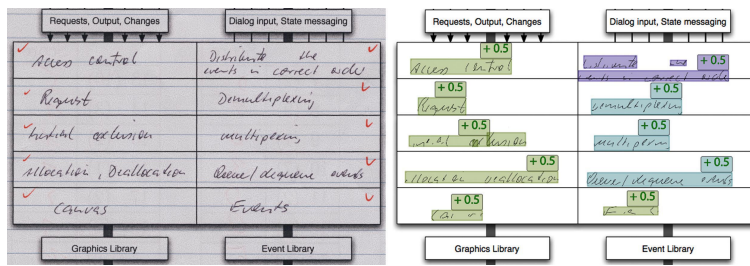 Requests, Output, Changes
Dialog input, State messaging
Access control
Distribute the
events in correct order
Request
Demultiplexing
Mutual exclusion
multiplexing
Allocation, Deallocation
Queue/dequeue events
Canvas
Events
Graphics Library
Event Library
Requests, Output, Changes
Dialog input, State messaging
+ 0.5
Access control
+ 0.5
Distribute the
events in correct order
+ 0.5
Request
+ 0.5
Demultiplexing
+ 0.5
exclusion
+ 0.5
multiplexing
+ 0.5
+ 0.5
Queue/dequeue events
+ 0.5
+ 0.5
Graphics Library
Event Library